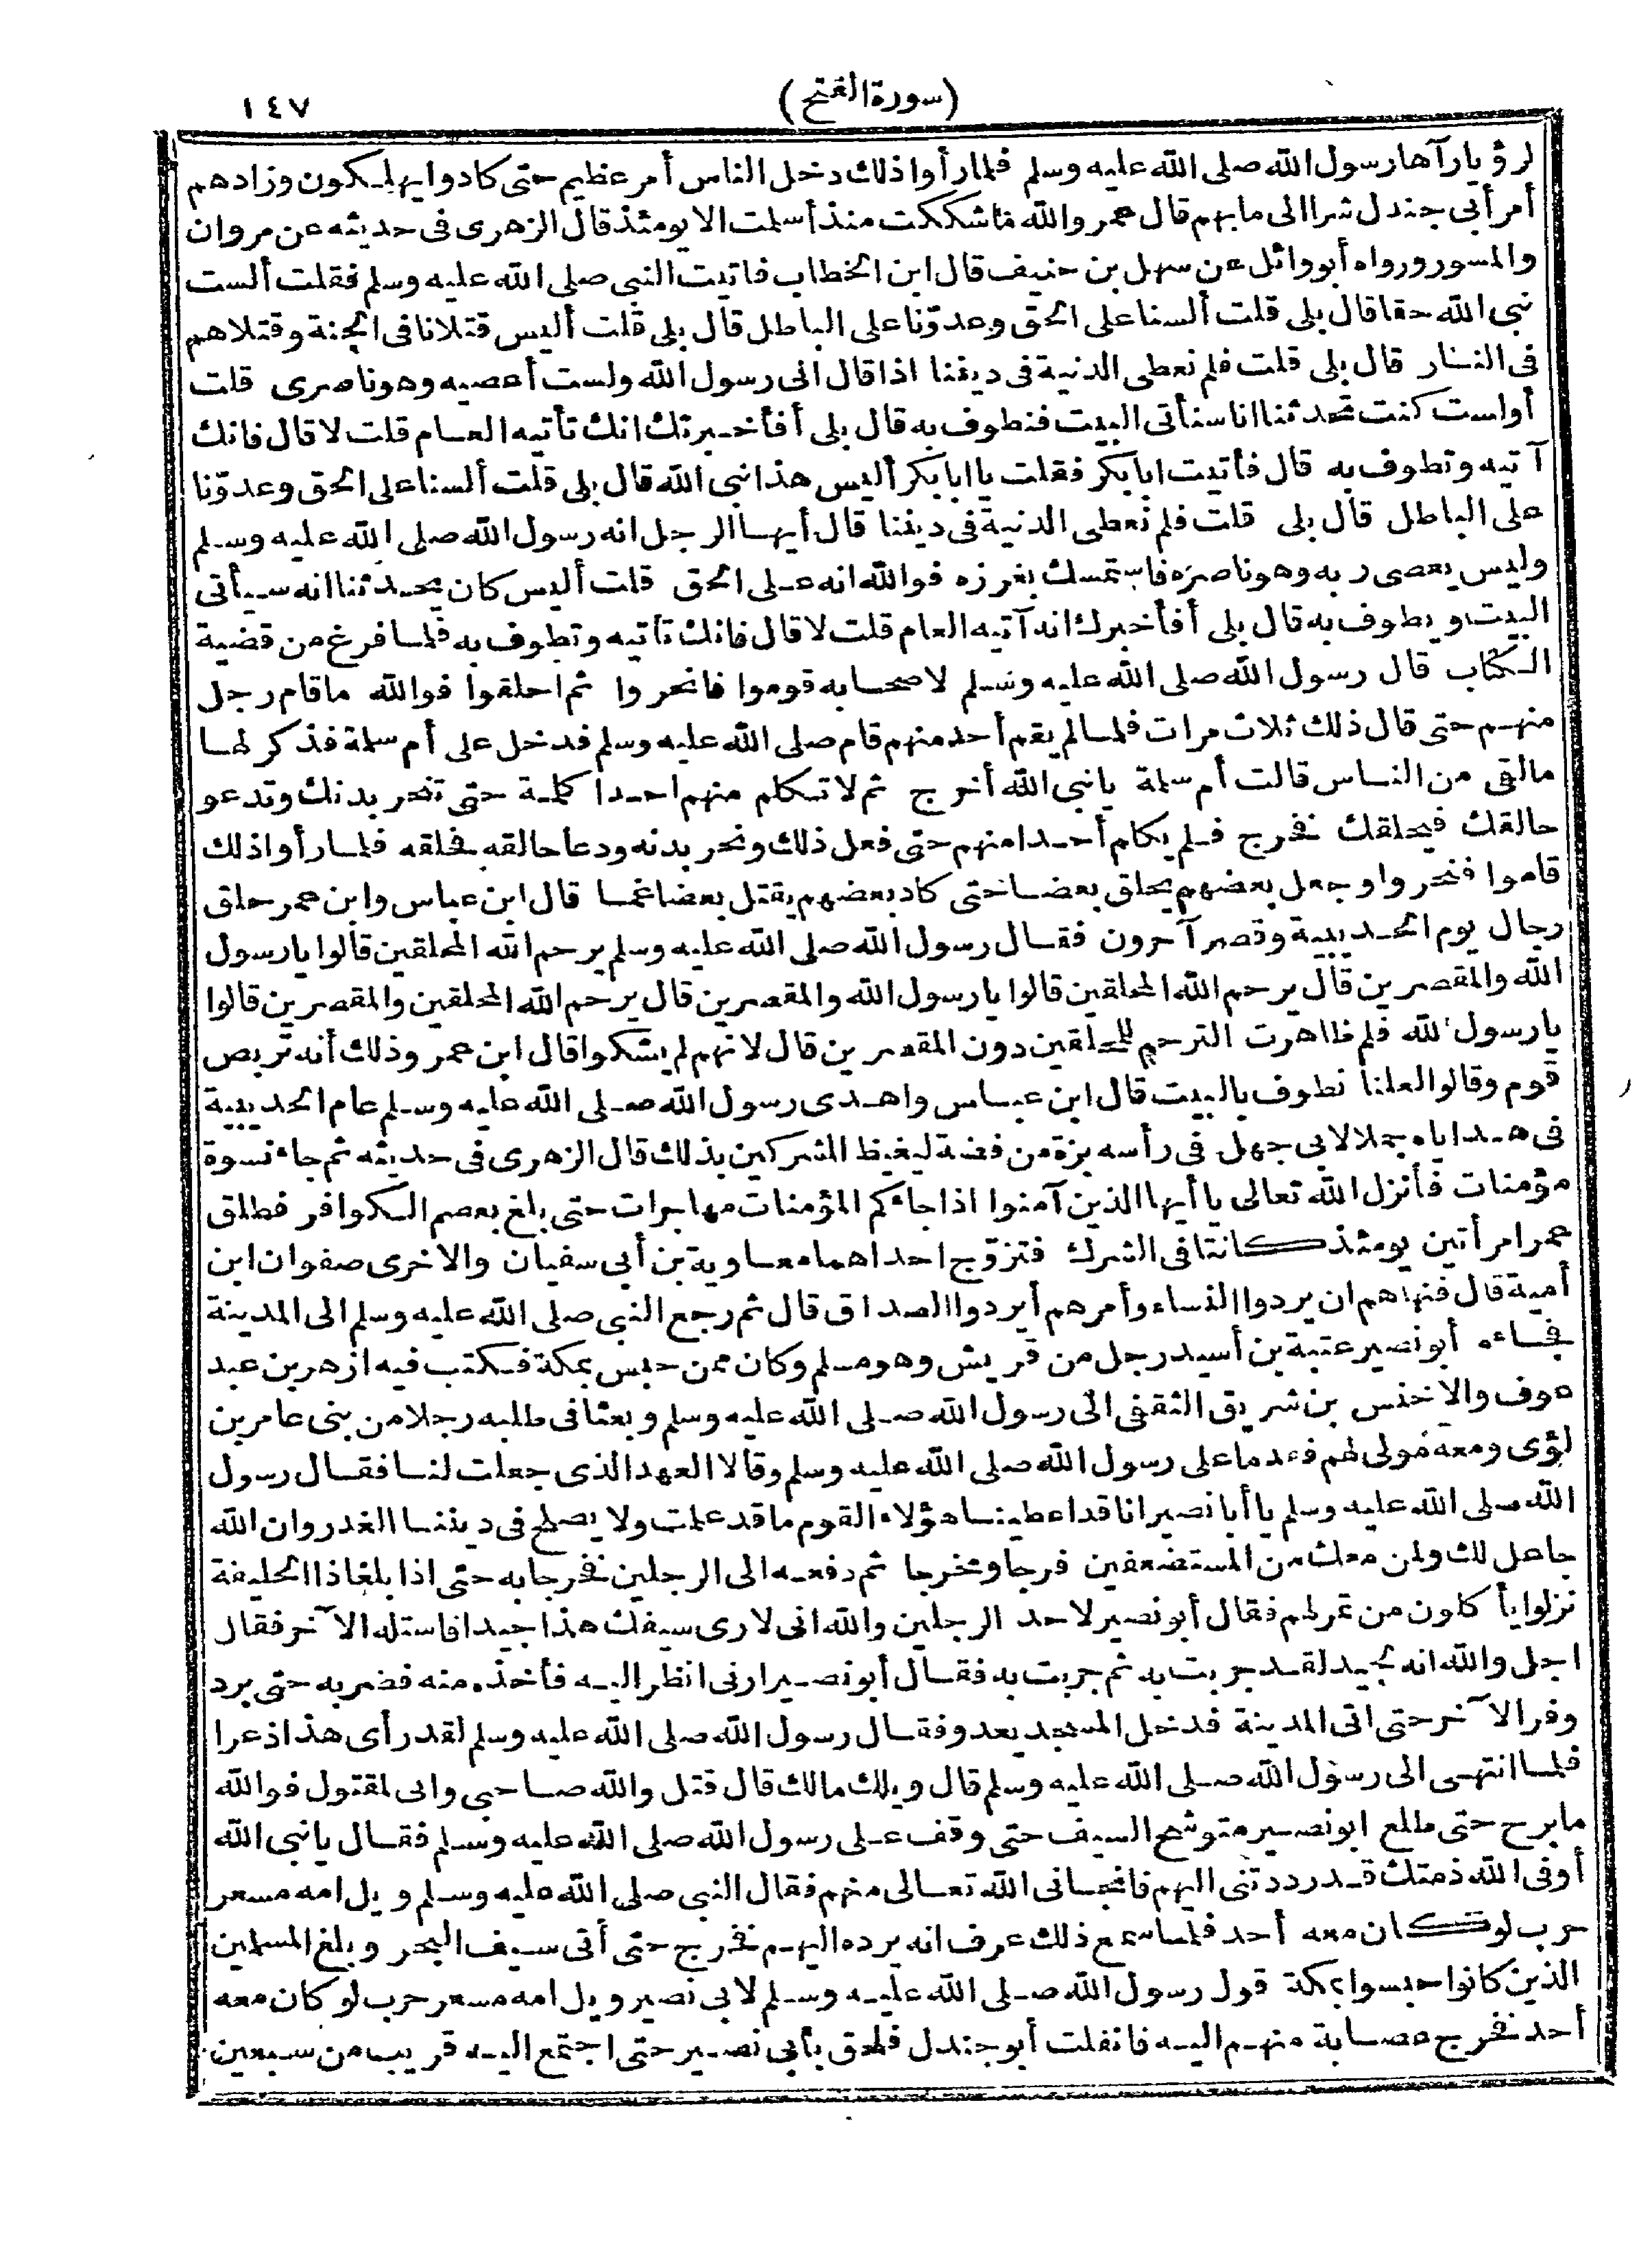 (سورة الفتح)
١٤٧
لرؤيا رآها رسول الله صلى الله عليه وسلم فلما رأوا ذلك دخل الناس أمر عظيم حتى كادوا يهلكون وزادهم
أمر أبي جندل شرا الى ما بهم قال عمر والله ما شككت منذ أسلمت الا يومئذ قال الزهرى فى حديثه عن مروان
والمسور ورواه أبو وائل عن سهل بن حنيف قال ابن الخطاب فاتيت النبى صلى الله عليه وسلم فقلت ألست
نبى الله حقا قال بلى قلت ألسنا على الحق وعدوّنا على الباطل قال بلى قلت أليس قتلانا فى الجنة وقتلاهم
فى النار قال بلى قلت فلم نعطى الدنية فى ديننا اذا قال انى رسول الله ولست أعصيه وهو ناصرى قلت
أولست كنت تحدثنا انا سنأتى البيت فنطوف به قال بلى أفأخبرتك انك تأتيه العام قلت لا قال فانك
آتيه وتطوف به قال فأتيت ابا بكر فقلت يا ابا بكر أليس هذا نبى الله قال بلى قلت ألسنا على الحق وعدوّنا
على الباطل قال بلى قلت فلم نعطى الدنية فى ديننا قال أيها الرجل انه رسول الله صلى الله عليه وسلم
وليس يعصى ربه وهو ناصره فاستمسك بغرزه فوالله انه على الحق قلت أليس كان يحدثنا انه سيأتى
البيت ويطوف به قال بلى أفأخبرك انه آتيه العام قلت لا قال فانك تأتيه وتطوف به فلما فرغ من قضية
الكتاب قال رسول الله صلى الله عليه وسلم لاصحابه قوموا فانحروا ثم احلقوا فوالله ما قام رجل
منهم حتى قال ذلك ثلاث مرات فلما لم يقم أحد منهم قام صلى الله عليه وسلم فدخل على أم سلمة فذكر لها
ما لقى من الناس قالت أم سلمة يا نبى الله أخرج ثم لا تكلم منهم احدا كلمة حتى تنحر بدنك وتدعو
حالقك فيحلقك فخرج فلم يكلم أحدا منهم حتى فعل ذلك ونحر بدنه ودعا حالقه فحلقه فلما رأوا ذلك
قاموا فنحروا وجعل بعضهم يحلق بعضا حتى كاد بعضهم يقتل بعضا غما قال ابن عباس وابن عمر حلق
رجال يوم الحديبية وقصر آخرون فقال رسول الله صلى الله عليه وسلم يرحم الله المحلقين قالوا يا رسول
الله والمقصرين قال يرحم الله المحلقين قالوا يا رسول الله والمقصرين قال يرحم الله المحلقين والمقصرين قالوا
يا رسول الله فلم ظاهرت الترحم للمحلقين دون المقصرين قال لانهم لم يشكوا قال ابن عمر وذلك أنه تربص
قوم وقالوا لعلنا نطوف بالبيت قال ابن عباس واهدى رسول الله صلى الله عليه وسلم عام الحديبية
فى هداياه جملا لابى جهل فى رأسه برة من فضة ليغيظ المشركين بذلك قال الزهرى فى حديثه ثم جاء نسوة
مؤمنات فأنزل الله تعالى يا أيها الذين آمنوا اذا جاءكم المؤمنات مهاجرات حتى بلغ بعصم الكوافر فطلق
عمر امرأتين يومئذ كانتا فى الشرك فتزوّج احداهما معاوية بن أبى سفيان والاخرى صفوان ابن
أمية قال فنهاهم ان يردوا النساء وأمرهم أن يردوا الصداق قال ثم رجع النبى صلى الله عليه وسلم الى المدينة
فجاءه أبو نصير عتبة بن أسيد رجل من قريش وهو مسلم وكان ممن حبس بمكة فكتب فيه ازهر بن عبد
عوف والاخنس بن شريق الثقفى الى رسول الله صلى الله عليه وسلم وبعثا فى طلبه رجلا من بنى عامر بن
لؤى ومعه مولى لهم فقدما على رسول الله صلى الله عليه وسلم وقالا العهد الذى جعلت لنا فقال رسول
الله صلى الله عليه وسلم يا أبا نصير انا قد اعطينا هؤلاء القوم ما قد علمت ولا يصلح فى ديننا الغدر وان الله
جاعل لك ولمن معك من المستضعفين فرجا ومخرجا ثم دفعه الى الرجلين فخرجا به حتى اذا بلغا ذا الحليفة
نزلوا يأكلون من تمر لهم فقال أبو نصير لاحد الرجلين والله انى لارى سيفك هذا جيدا فاستله الآخر فقال
اجل والله انه لجيد لقد جربت به ثم جربت به فقال أبو نصير ارنى انظر اليه فأخذه منه فضربه حتى برد
وفر الآخر حتى اتى المدينة فدخل المسجد يعدو فقال رسول الله صلى الله عليه وسلم لقد رأى هذا ذعرا
فلما انتهى الى رسول الله صلى الله عليه وسلم قال ويلك مالك قال قتل والله صاحبى وانى لمقتول فوالله
ما برح حتى طلع ابو نصير متوشح السيف حتى وقف على رسول الله صلى الله عليه وسلم فقال يا نبى الله
أوفى الله ذمتك قد رددتنى اليهم فانجانى الله تعالى منهم فقال النبى صلى الله عليه وسلم ويل امه مسعر
حرب لو كان معه أحد فلما سمع ذلك عرف انه يرده اليهم فخرج حتى أتى سيف البحر وبلغ المسلمين
الذين كانوا حبسوا بمكة قول رسول الله صلى الله عليه وسلم لابى نصير ويل امه مسعر حرب لو كان معه
أحد فخرج عصابة منهم اليه فانفلت أبو جندل فلحق بأبى نصير حتى اجتمع اليه قريب من سبعين